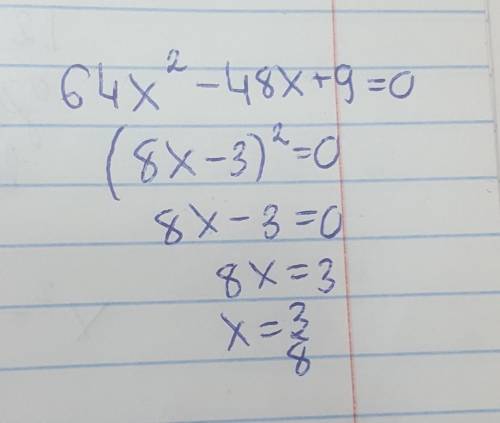 64x² - 48x + 9 = 0
(8x - 3)² = 0
8x - 3 = 0
8x = 3
x = 3/8